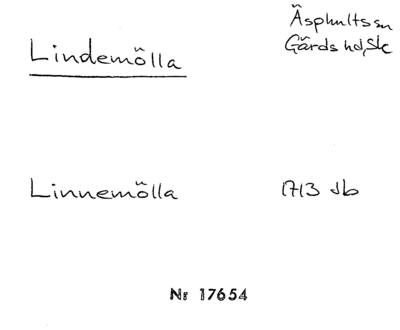 Lindemölla
Äsphultssn
Gärds hd, Sk
Linnemölla
1713 Jb
Nr 17654